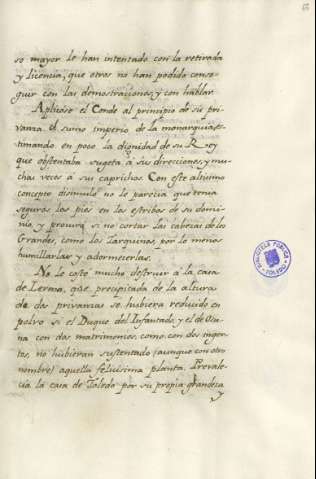 so mayor le han intentado con la retirada
y licencia, que otros no han podido conse-
guir con las demostraciones, y con hablar.
Aplicose el Conde al principio de su pri-
vanza el sumo imperio de la monarquia, es-
timando en poco la dignidad de su Rey
que obstentaba sugeta á sus direcciones, y mu-
chas veces á sus caprichos. Con este altisimo
concepto disimuló no le parecia que tenia
seguros los pies en los estribos de su domi-
nio, y procuró si no cortar las cabezas de los
Grandes, como los Tarquinos, por lo menos
humillarlas y adormecerlas.
No le costo mucho destruir a la casa
de Lerma, que precipitada de la altura
de dos privanzas se hubiera reducido en
polvo si el Duque del Infantado, y el de Osu-
na con dos matrimonios, como con dos inger-
tos, no hubieran sustentado (aunque con otro
nombre) aquella felicisima planta. Prevale-
cia la casa de Toledo por su propia grandeza
y
BIBLIOTECA PÚBLICA
TOLEDO